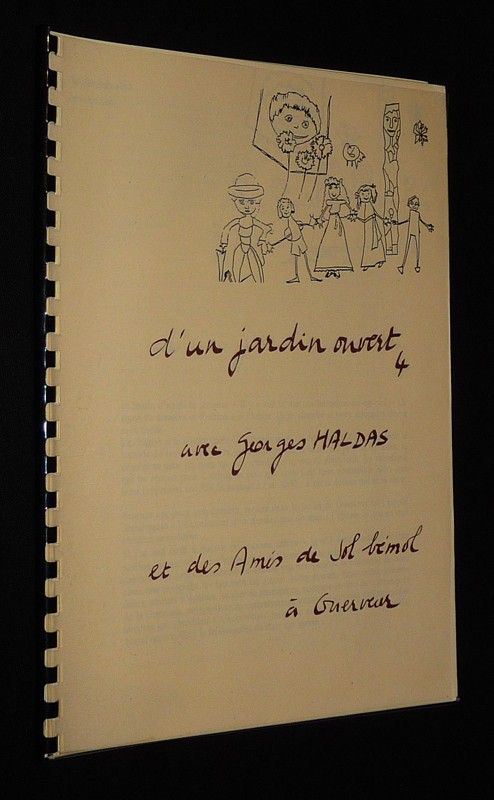 d'un jardin ouvert 4
avec Georges HALDAS
et des Amis de Sol bémol
à Guerveur